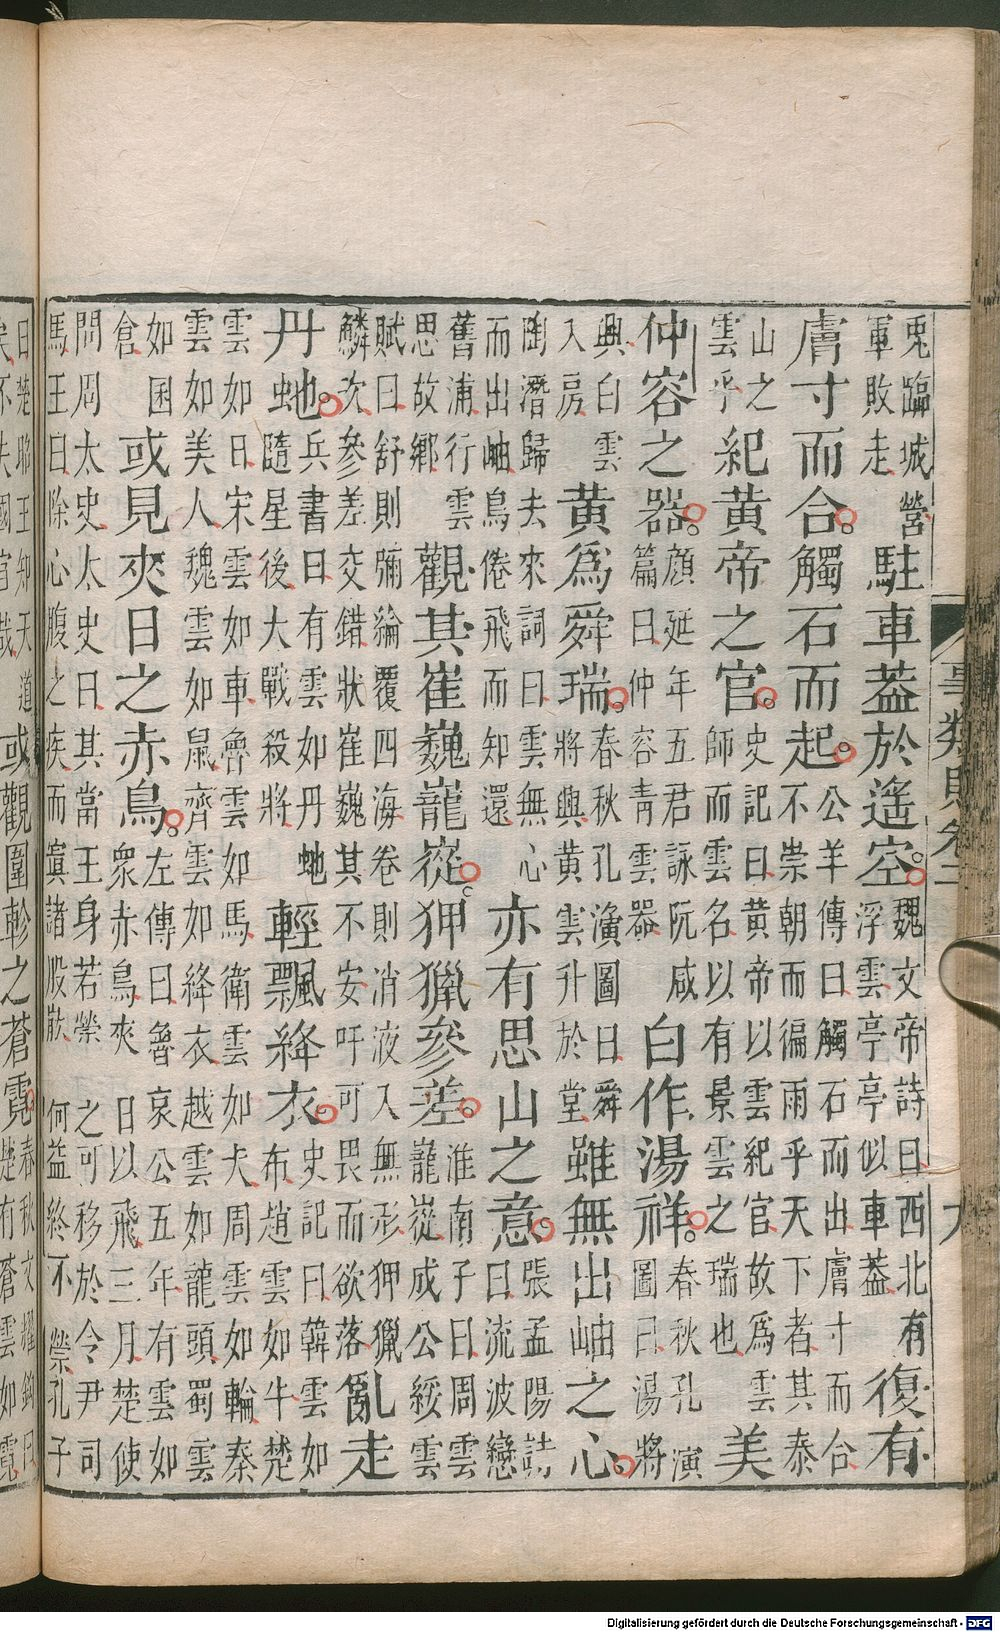 事類賦卷二 九
兎臨城營
軍敗走
駐車葢於遙空
魏文帝詩曰西北有
浮雲亭亭似車葢
復有
膚寸而合觸石而起
公羊傳曰觸石而出膚寸而合
不崇朝而徧雨乎天下者其泰
山之
雲乎
紀黃帝之官
史記曰黃帝以雲紀官故爲雲
師而雲名以有景雲之瑞也
美
仲容之器
顔延年五君詠阮咸
篇曰仲容青雲器
白作湯祥
春秋孔演
圖曰湯將
興白雲
入房
黃爲舜瑞
春秋孔演圖曰舜
將興黃雲升於堂
雖無出岫之心
陶潛歸去來詞曰雲無心
而出岫鳥倦飛而知還
亦有思山之意
張孟陽詩
曰流波戀
舊浦行雲
思故鄉
觀其崔巍巃嵸狎獵參差
淮南子曰周雲
巃嵸成公綏雲
賦曰舒則彌綸覆四海卷則消液入無形狎獵
鱗次參差交錯狀崔巍其不安吁可畏而欲落
亂走
丹虵
兵書曰有雲如丹虵
隨星後大戰殺將
輕飄絳衣
史記曰韓雲如
布趙雲如牛楚
雲如日宋雲如車魯雲如馬衛雲如犬周雲如輪秦
雲如美人魏雲如鼠齊雲如絳衣越雲如龍頭蜀雲
如囷
倉
或見夾日之赤鳥
左傳曰魯哀公五年有雲如
衆赤鳥夾日以飛三月楚使
問周太史太史曰其當王身若禜之可移於令尹司
馬王曰除心腹之疾而寘諸股肱何益終不禜孔子
曰楚昭王知天道
矣不失國宜哉
或觀圍軫之蒼霓
春秋文耀鉤曰
楚有蒼雲如霓
Digitalisierung gefördert durch die Deutsche Forschungsgemeinschaft - DFG